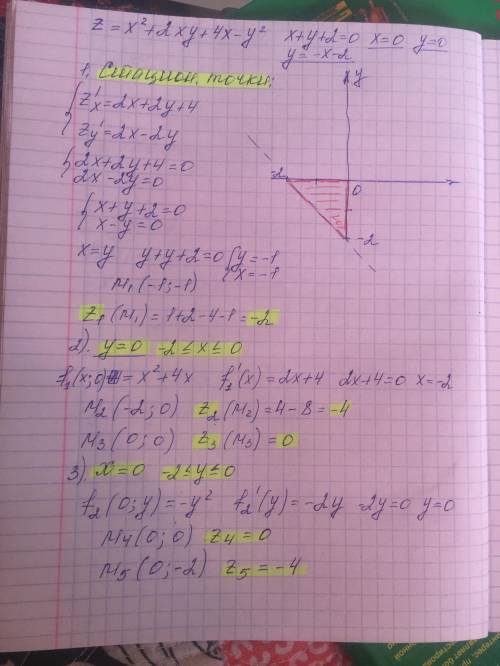 z = x² + 2xy + 4x - y²   x+y+2=0   x=0   y=0
y = -x-2
1. Стацион. точки:
{ z'x = 2x+2y+4
z'y = 2x-2y
{ 2x+2y+4=0
2x-2y=0
{ x+y+2=0
x-y=0
x=y   y+y+2=0 { y=-1
x=-1
M₁(-1;-1)
z₁(M₁) = 1+2-4-1 = -2
2). y=0   -2≤x≤0
f₁(x;0) = x²+4x   f₁'(x) = 2x+4   2x+4=0   x=-2
M₂(-2;0)   z₂(M₂) = 4-8 = -4
M₃(0;0)   z₃(M₃) = 0
3) x=0   -2≤y≤0
f₂(0;y) = -y²   f₂'(y) = -2y   -2y=0   y=0
M₄(0;0)   z₄ = 0
M₅(0;-2)   z₅ = -4
y
-2
0
-2